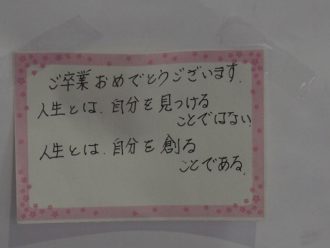 ご卒業おめでとうございます.
人生とは、自分を見つける
ことではない
人生とは、自分を創る
ことである.